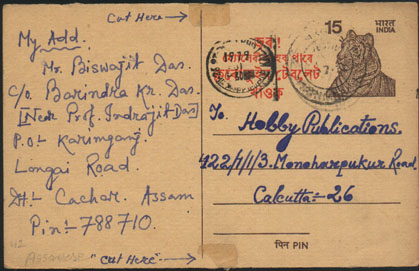 Cut Here →
My Add.
Mr. Biswajit Das.
C/o Barindra Kr. Das.
[Near Prof. Indrajit Das]
P.O:- Karimganj.
Longai Road.
Dt:- Cachar. Assam
Pin:- 788710.
"Cut Here" →
Assamese
15 भारत
INDIA
To,
Hobby Publications.
422/1/1/3. Monoharpukur Road
Calcutta:-26
पिन PIN